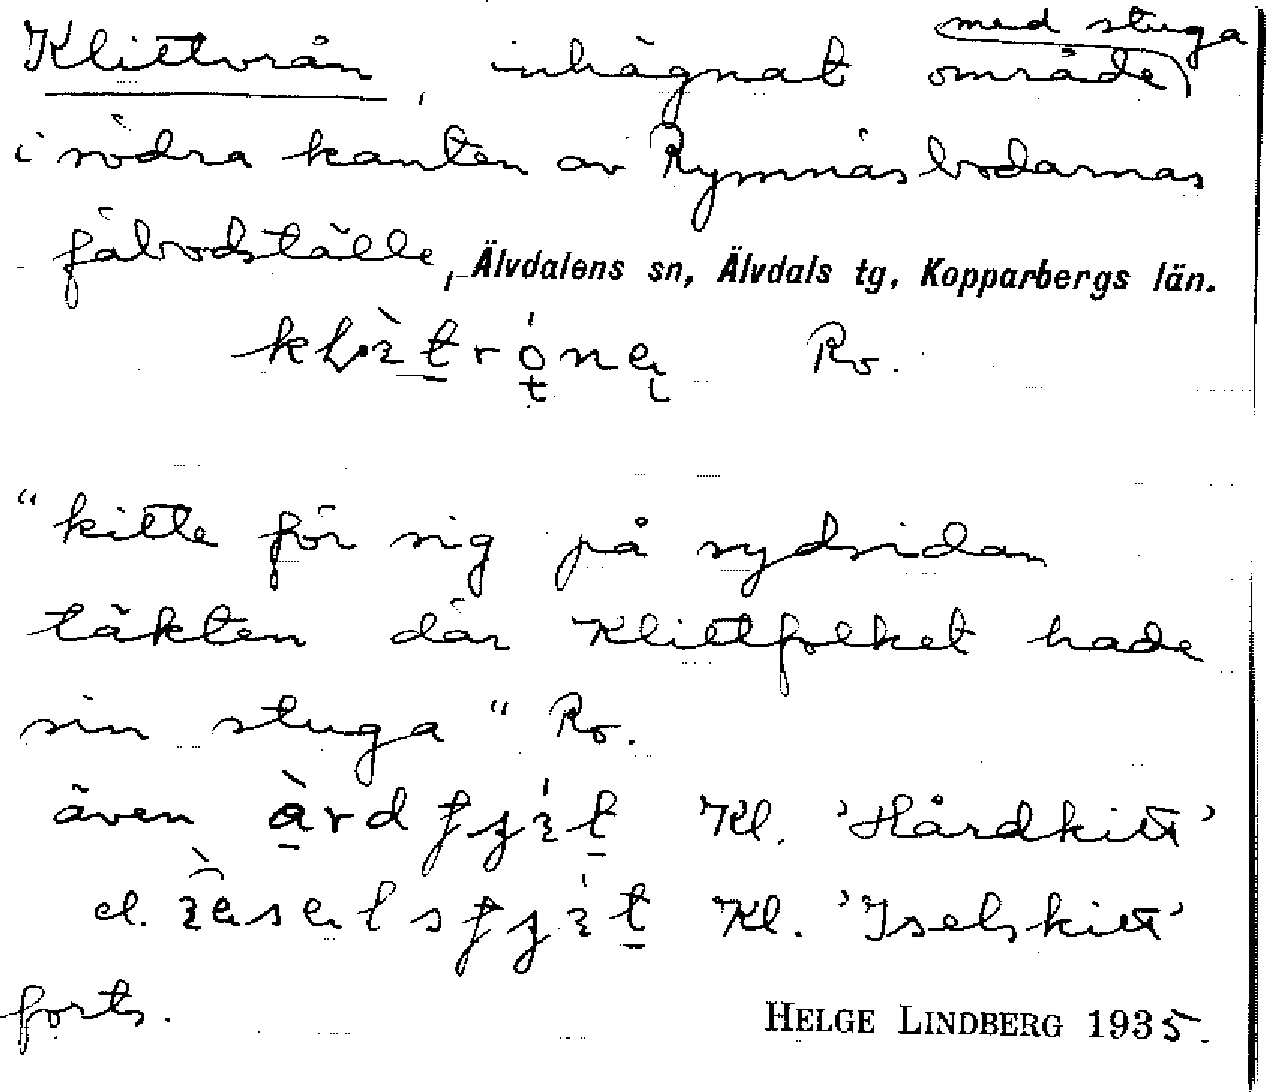 Klittvrån, inhägnat område med stuga
i södra kanten av Rymnäsbodarnas
fäbodställe, Älvdalens sn, Älvdals tg, Kopparbergs län.
Ro.
"kitte för sig på sydsidan
täkten där Klittfolket hade
sin stuga" Ro.
även Kl. 'Hårdkitt'
el. Kl. 'Iselskitt'
forts.
HELGE LINDBERG 1935.